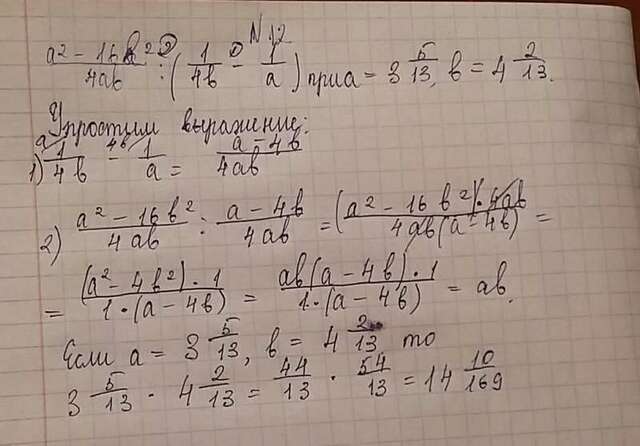 N12
a² - 16b² / 4ab : (1/4b - 1/a) при a = 3 5/13, b = 4 2/13.
Упростим выражение:
1) 1/4b - 1/a = a - 4b / 4ab
2) a² - 16b² / 4ab : a - 4b / 4ab = (a² - 16b²) · 4ab / 4ab(a - 4b) =
= (a² - 4b²) · 1 / 1 · (a - 4b) = ab(a - 4b) · 1 / 1 · (a - 4b) = ab.
Если a = 3 5/13, b = 4 2/13 то
3 5/13 · 4 2/13 = 44/13 · 54/13 = 14 10/169